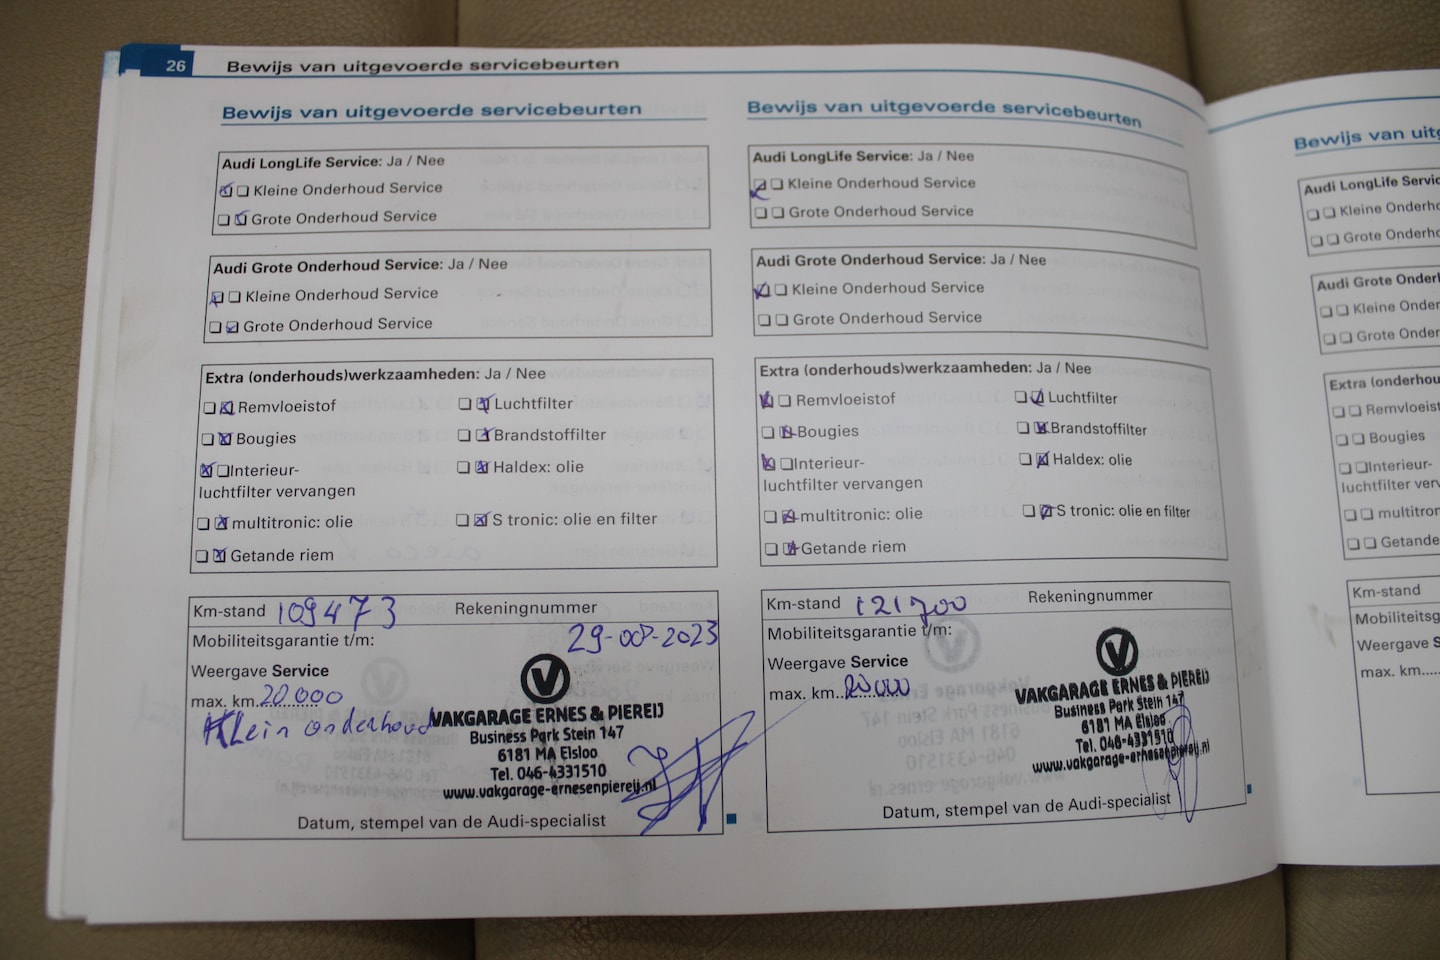 26 Bewijs van uitgevoerde servicebeurten
Bewijs van uitgevoerde servicebeurten
Audi LongLife Service: Ja / Nee
Kleine Onderhoud Service
Grote Onderhoud Service
Audi Grote Onderhoud Service: Ja / Nee
Kleine Onderhoud Service
Grote Onderhoud Service
Extra (onderhouds)werkzaamheden: Ja / Nee
Remvloeistof Luchtfilter
Bougies Brandstoffilter
Interieur- Haldex: olie
luchtfilter vervangen
multitronic: olie S tronic: olie en filter
Getande riem
Km-stand 109473 Rekeningnummer
Mobiliteitsgarantie t/m: 29-08-2023
Weergave Service
max. km. 20.000
Klein onderhoud
VAKGARAGE ERNES & PIEREIJ
Business Park Stein 147
6181 MA Elsloo
Tel. 046-4331510
www.vakgarage-ernesenpiereij.nl
Datum, stempel van de Audi-specialist
Bewijs van uitgevoerde servicebeurten
Audi LongLife Service: Ja / Nee
Kleine Onderhoud Service
Grote Onderhoud Service
Audi Grote Onderhoud Service: Ja / Nee
Kleine Onderhoud Service
Grote Onderhoud Service
Extra (onderhouds)werkzaamheden: Ja / Nee
Remvloeistof Luchtfilter
Bougies Brandstoffilter
Interieur- Haldex: olie
luchtfilter vervangen
multitronic: olie S tronic: olie en filter
Getande riem
Km-stand 121700 Rekeningnummer
Mobiliteitsgarantie t/m:
Weergave Service
max. km. 20.000
VAKGARAGE ERNES & PIEREIJ
Business Park Stein 147
6181 MA Elsloo
Tel. 046-4331510
www.vakgarage-ernesenpiereij.nl
Datum, stempel van de Audi-specialist
Bewijs van uitg
Audi LongLife Servic
Kleine Onderho
Grote Onderho
Audi Grote Onderh
Kleine Onder
Grote Onder
Extra (onderhou
Remvloeist
Bougies
Interieur-
luchtfilter verv
multitron
Getande
Km-stand
Mobiliteitsg
Weergave S
max. km....